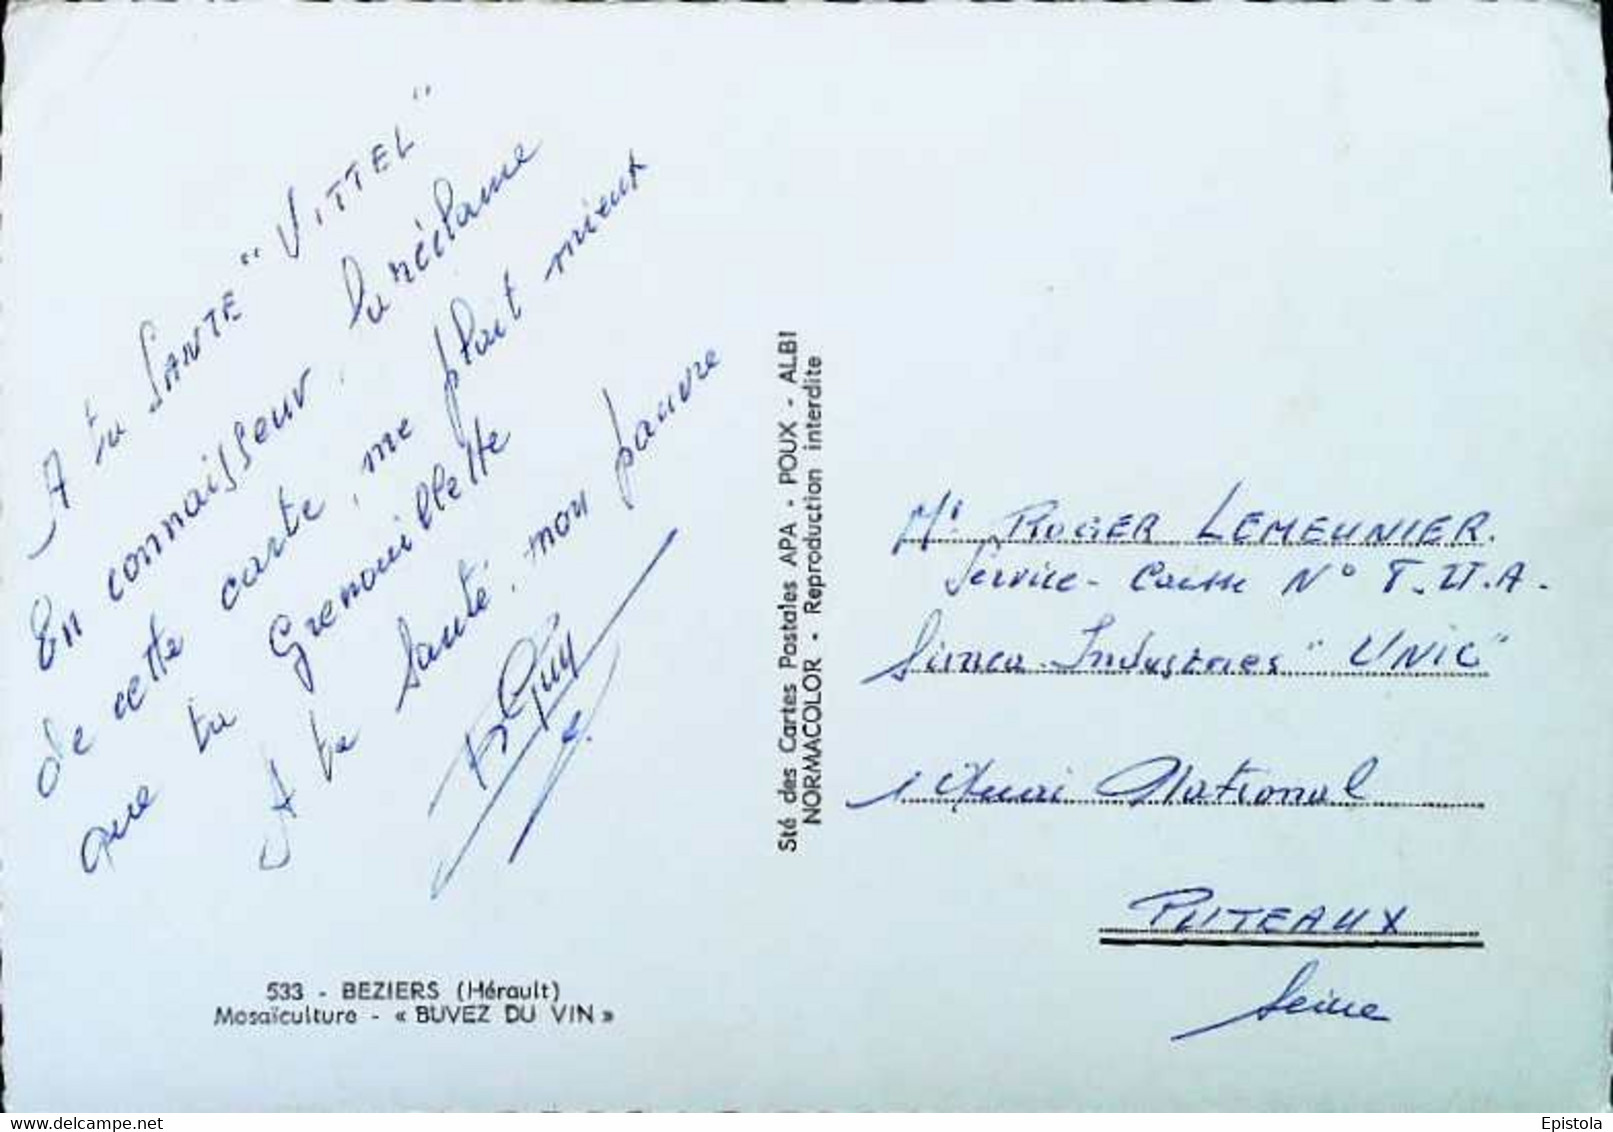 A ta SANTE "VITTEL"
En connaisseur, la réclame
de cette carte, me plait mieux
que ta Grenouillette
A ta santé, mon pauvre
Guy
533 - BEZIERS (Hérault)
Mosaïculture - « BUVEZ DU VIN »
Sté des Cartes Postales APA - POUX - ALBI
NORMACOLOR - Reproduction interdite
Mr ROGER LEMEUNIER.
Service - Caisse N°
Simca Industries "UNIC"
1 Quai National
PUTEAUX
Seine
www.delcampe.net
Epistola